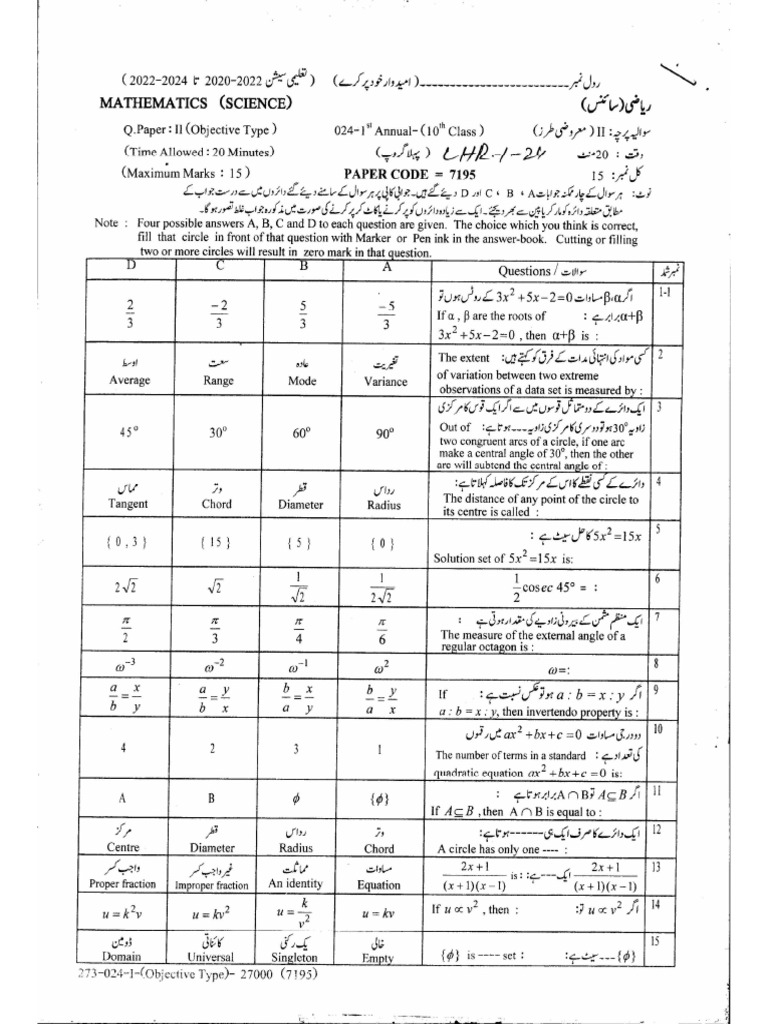 رول نمبر ــــــــــــــــــــــ (امیدوار خود پر کرے) (تعلیمی سیشن 2020-2022 تا 2022-2024)
MATHEMATICS (SCIENCE) ریاضی (سائنس)
Q.Paper : II (Objective Type) 024-1st Annual-(10th Class) سوالیہ پرچہ : II (معروضی طرز)
(Time Allowed : 20 Minutes) (پہلا گروپ) LHR-1-24 وقت : 20 منٹ
(Maximum Marks : 15) PAPER CODE = 7195 کل نمبر : 15
نوٹ: ہر سوال کے چار ممکنہ جوابات A ، B ، C اور D دیئے گئے ہیں۔ جوابی کاپی پر ہر سوال کے سامنے دیئے گئے دائروں میں سے درست جواب کے
مطابق متعلقہ دائرہ کو مارکر یا پین سے بھر دیجئے۔ ایک سے زیادہ دائروں کو پر کرنے یا کاٹ کر پر کرنے کی صورت میں مذکورہ جواب غلط تصور ہو گا۔
Note : Four possible answers A, B, C and D to each question are given. The choice which you think is correct,
fill that circle in front of that question with Marker or Pen ink in the answer-book. Cutting or filling
two or more circles will result in zero mark in that question.
D C B A Questions / سوالات نمبر شمار
2/3 -2/3 5/3 -5/3 اگر α،β مساوات 3x²+5x-2=0 کے روٹس ہوں تو 1-1
α+β برابر ہے : If α , β are the roots of
3x²+5x-2=0 , then α+β is :
اوسط سعت عادہ تغیریت کسی مواد کی انتہائی مدات کے فرق کو کہتے ہیں: The extent 2
Average Range Mode Variance of variation between two extreme
observations of a data set is measured by :
45° 30° 60° 90° ایک دائرے کے دو متماثل قوسوں میں سے اگر ایک قوس کا مرکزی 3
زاویہ 30° ہو تو دوسری کا مرکزی زاویہ --- ہوتا ہے: Out of
two congruent arcs of a circle, if one arc
make a central angle of 30°, then the other
arc will subtend the central angle of :
مماس وتر قطر رداس دائرے کے کسی نقطے کا اس کے مرکز تک کا فاصلہ کہلاتا ہے: 4
Tangent Chord Diameter Radius The distance of any point of the circle to
its centre is called :
{ 0 , 3 } { 15 } { 5 } { 0 } 5x²=15x کا حل سیٹ ہے : 5
Solution set of 5x²=15x is:
2√2 √2 1/√2 1/2√2 1/2 cosec 45° = : 6
π/2 π/3 π/4 π/6 ایک منظم مثمن کے بیرونی زاویے کی مقدار ہوتی ہے : 7
The measure of the external angle of a
regular octagon is :
ω⁻³ ω⁻² ω⁻¹ ω² ω=: 8
a/b = x/y a/b = y/x b/a = x/y b/a = y/x اگر a : b = x : y ہو تو عکس نسبت ہے : If 9
a : b = x : y, then invertendo property is :
4 2 3 1 دو درجی مساوات ax²+bx+c=0 میں رقموں 10
کی تعداد ہے : The number of terms in a standard
quadratic equation ax²+bx+c=0 is:
A B ϕ {ϕ} اگر A⊆B تو A∩B برابر ہوتا ہے : 11
If A⊆B ,then A∩B is equal to :
مرکز قطر رداس وتر ایک دائرے کا صرف ایک ہی ------ ہوتا ہے: 12
Centre Diameter Radius Chord A circle has only one ---- :
واجب کسر غیر واجب کسر مماثلت مساوات (2x+1)/((x+1)(x-1)) ایک --- ہے: : is: (2x+1)/((x+1)(x-1)) 13
Proper fraction Improper fraction An identity Equation
u = k²v u = kv² u = k/v² u = kv اگر u ∝ v² تو: If u ∝ v² , then : 14
ڈومین کائناتی یک رکنی خالی {ϕ} --- سیٹ ہے: {ϕ} is ---- set : 15
Domain Universal Singleton Empty
273-024-1-(Objective Type)- 27000 (7195)